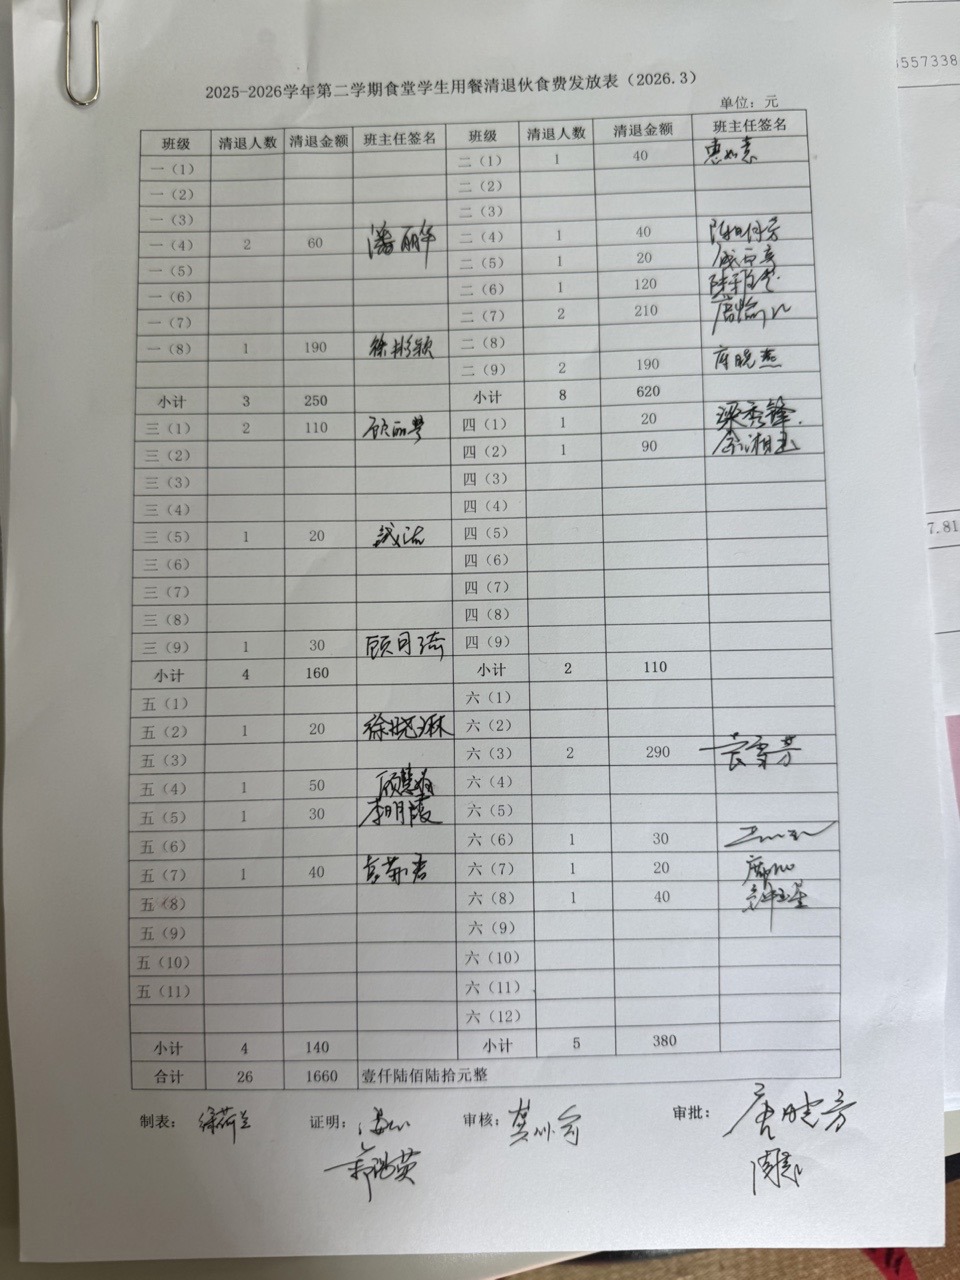 2025-2026学年第二学期食堂学生用餐清退伙食费发放表（2026.3）
单位：元
班级 清退人数 清退金额 班主任签名 班级 清退人数 清退金额 班主任签名
一（1） 二（1） 1 40
一（2） 二（2）
一（3） 二（3）
一（4） 2 60 潘丽华 二（4） 1 40
一（5） 二（5） 1 20
一（6） 二（6） 1 120
一（7） 二（7） 2 210
一（8） 1 190 徐彬颖 二（8）
二（9） 2 190 席晓燕
小计 3 250 小计 8 620
三（1） 2 110 顾丽梦 四（1） 1 20 梁秀锋
三（2） 四（2） 1 90
三（3） 四（3）
三（4） 四（4）
三（5） 1 20 四（5）
三（6） 四（6）
三（7） 四（7）
三（8） 四（8）
三（9） 1 30 顾月琦 四（9）
小计 4 160 小计 2 110
五（1） 六（1）
五（2） 1 20 徐晓琳 六（2）
五（3） 六（3） 2 290
五（4） 1 50 六（4）
五（5） 1 30 李明霞 六（5）
五（6） 六（6） 1 30
五（7） 1 40 六（7） 1 20
五（8） 六（8） 1 40
五（9） 六（9）
五（10） 六（10）
五（11） 六（11）
六（12）
小计 4 140 小计 5 380
合计 26 1660 壹仟陆佰陆拾元整
制表： 徐荷兰 证明： 审核： 审批： 唐晓芳
557338
7.81